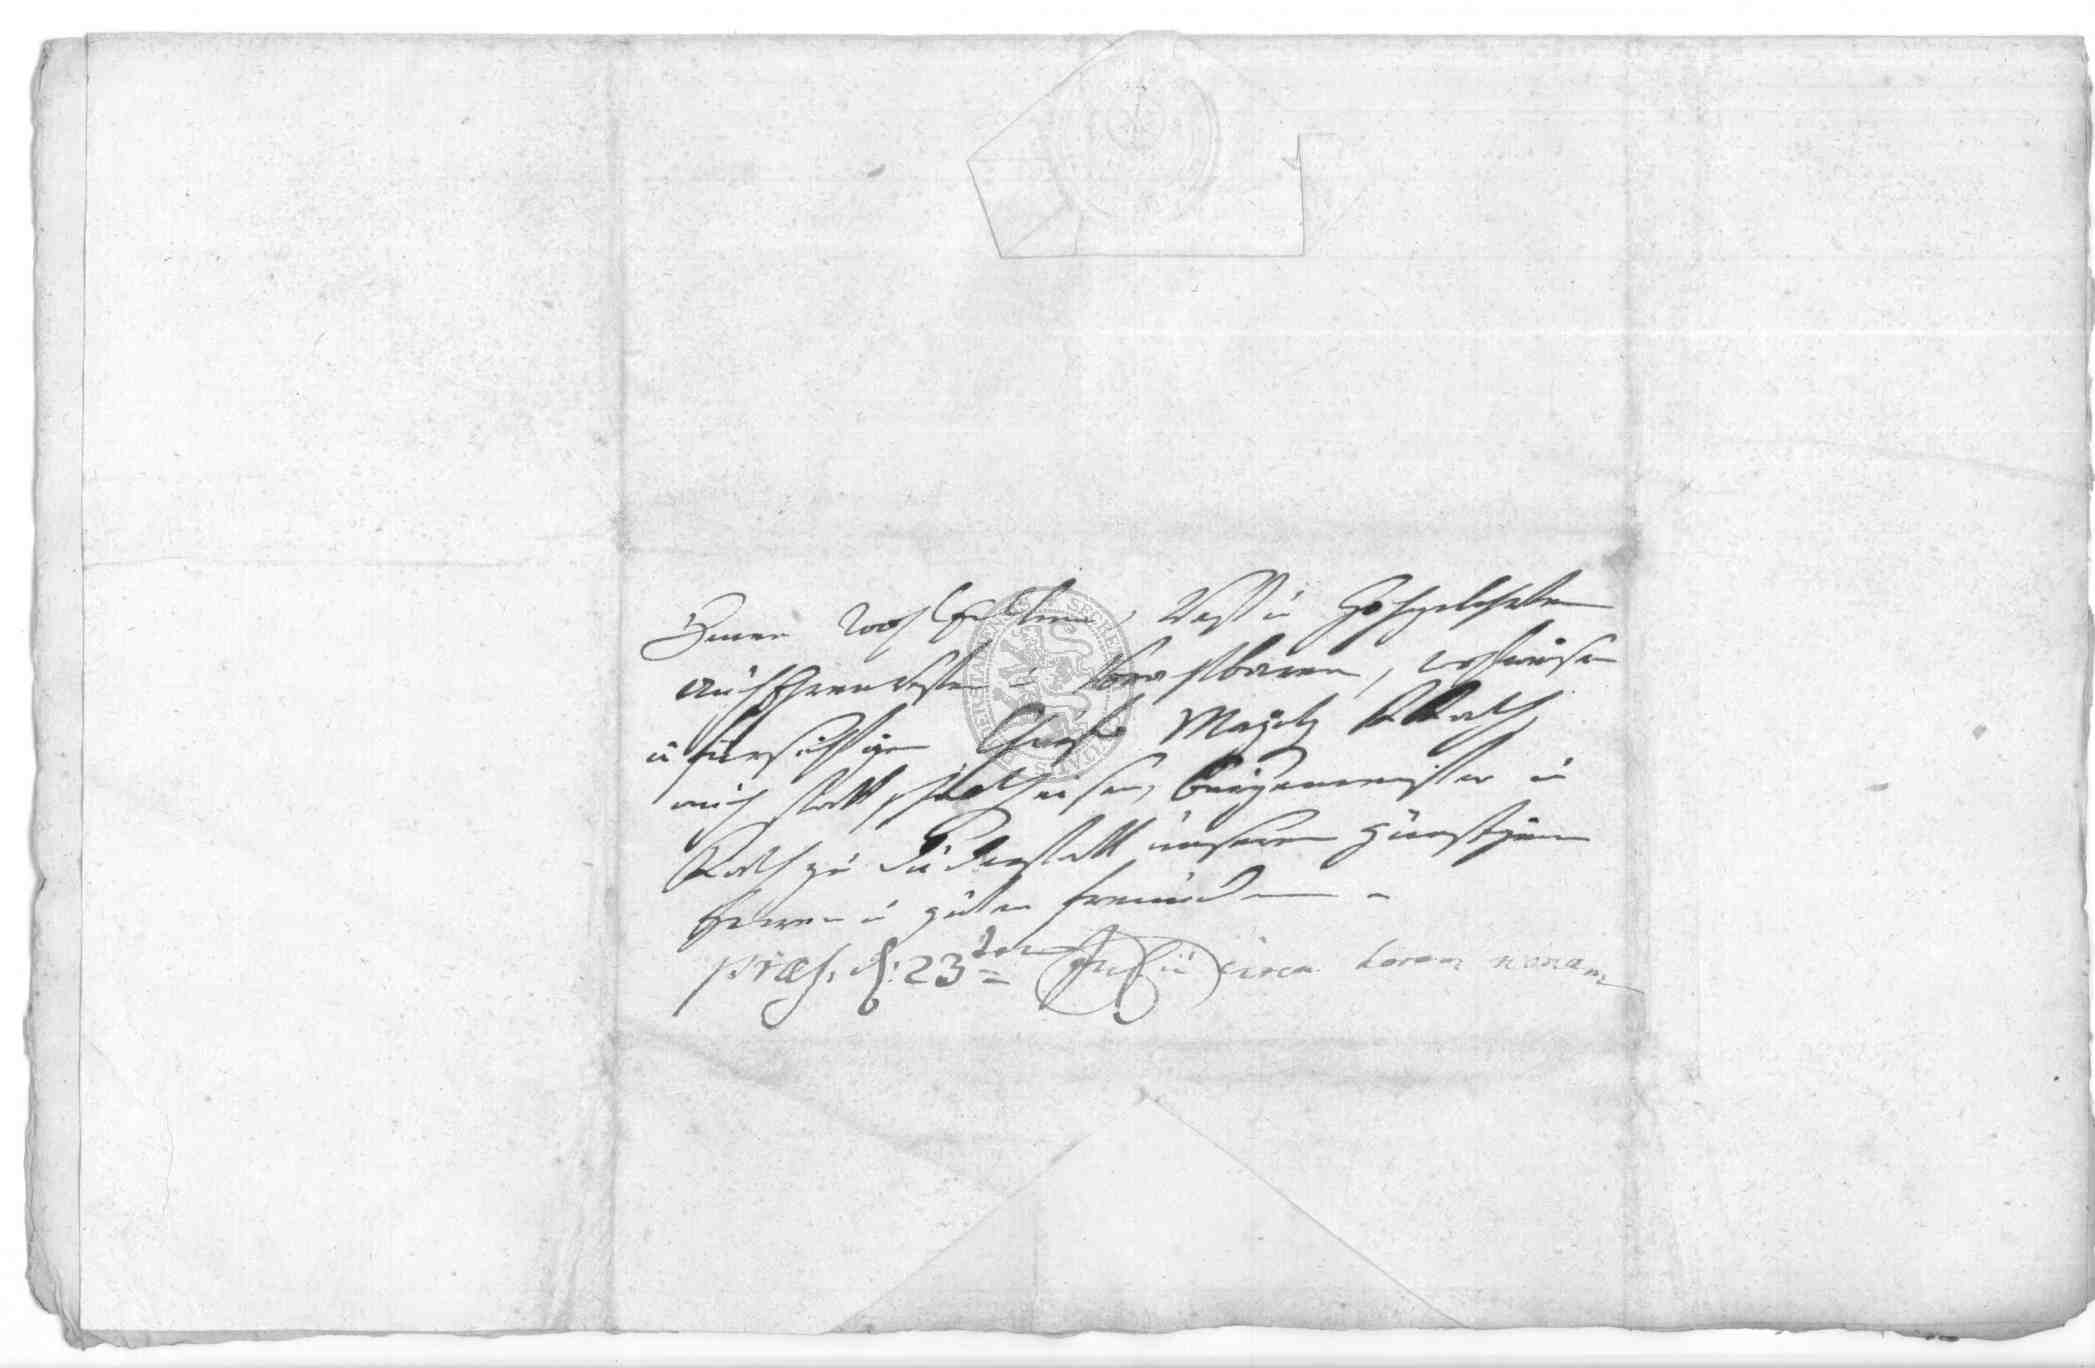 Denen WohlEdlen, Vest u Hochgelehrten
auch Ehrenvesten u Vorachtbaren, wohlweisen
u fürsichtigen Churf. Maÿntz Rath
auch statt schultheisen, Bürgermeister u
Rath zu Duderstatt unseren günstigen
herren u guten freunden
præs. d: 23ten Julii circa horam nonam